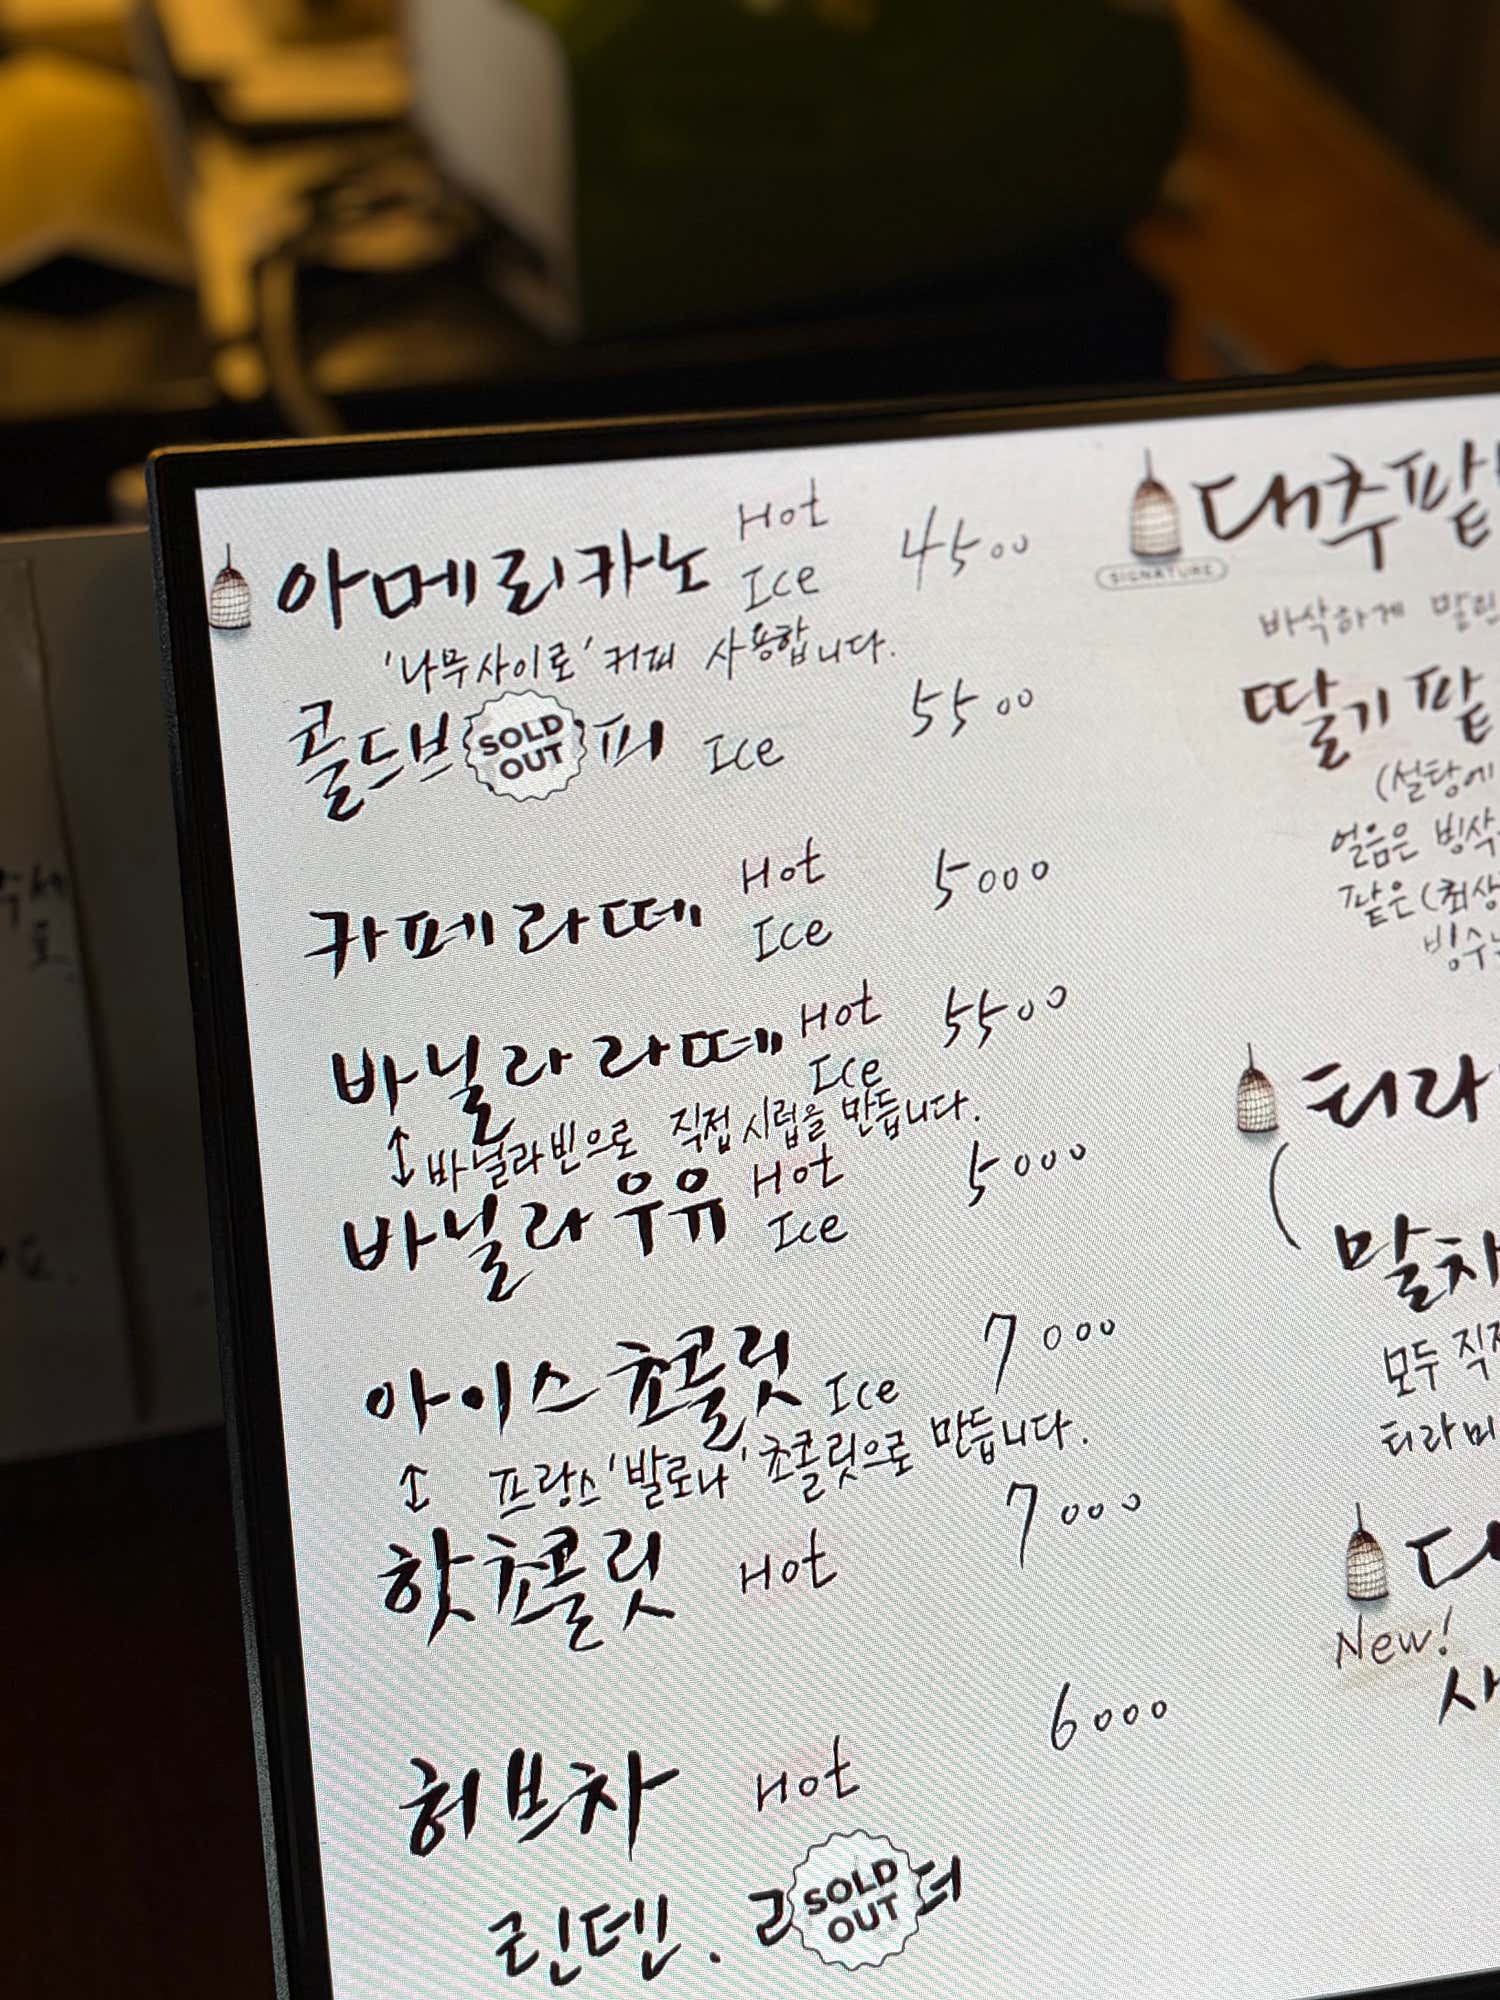 아메리카노 Hot Ice 4500
'나무사이로' 커피 사용합니다.
콜드브 SOLD OUT 피 Ice 5500
카페라떼 Hot Ice 5000
바닐라 라떼 Hot Ice 5500
↕ 바닐라빈으로 직접 시럽을 만듭니다.
바닐라 우유 Hot Ice 5000
아이스 쵸콜릿 Ice 7000
↕ 프랑스 '발로나' 초콜릿으로 만듭니다.
핫쵸콜릿 Hot 7000
허브차 Hot 6000
린덴. SOLD OUT 더
대추팥
SIGNATURE
바삭하게 말린
딸기 팥
(설탕에
얼음은 빙삭
팥은 (최상
빙수는
티라
(
말차
모두 직접
티라미
다
New!